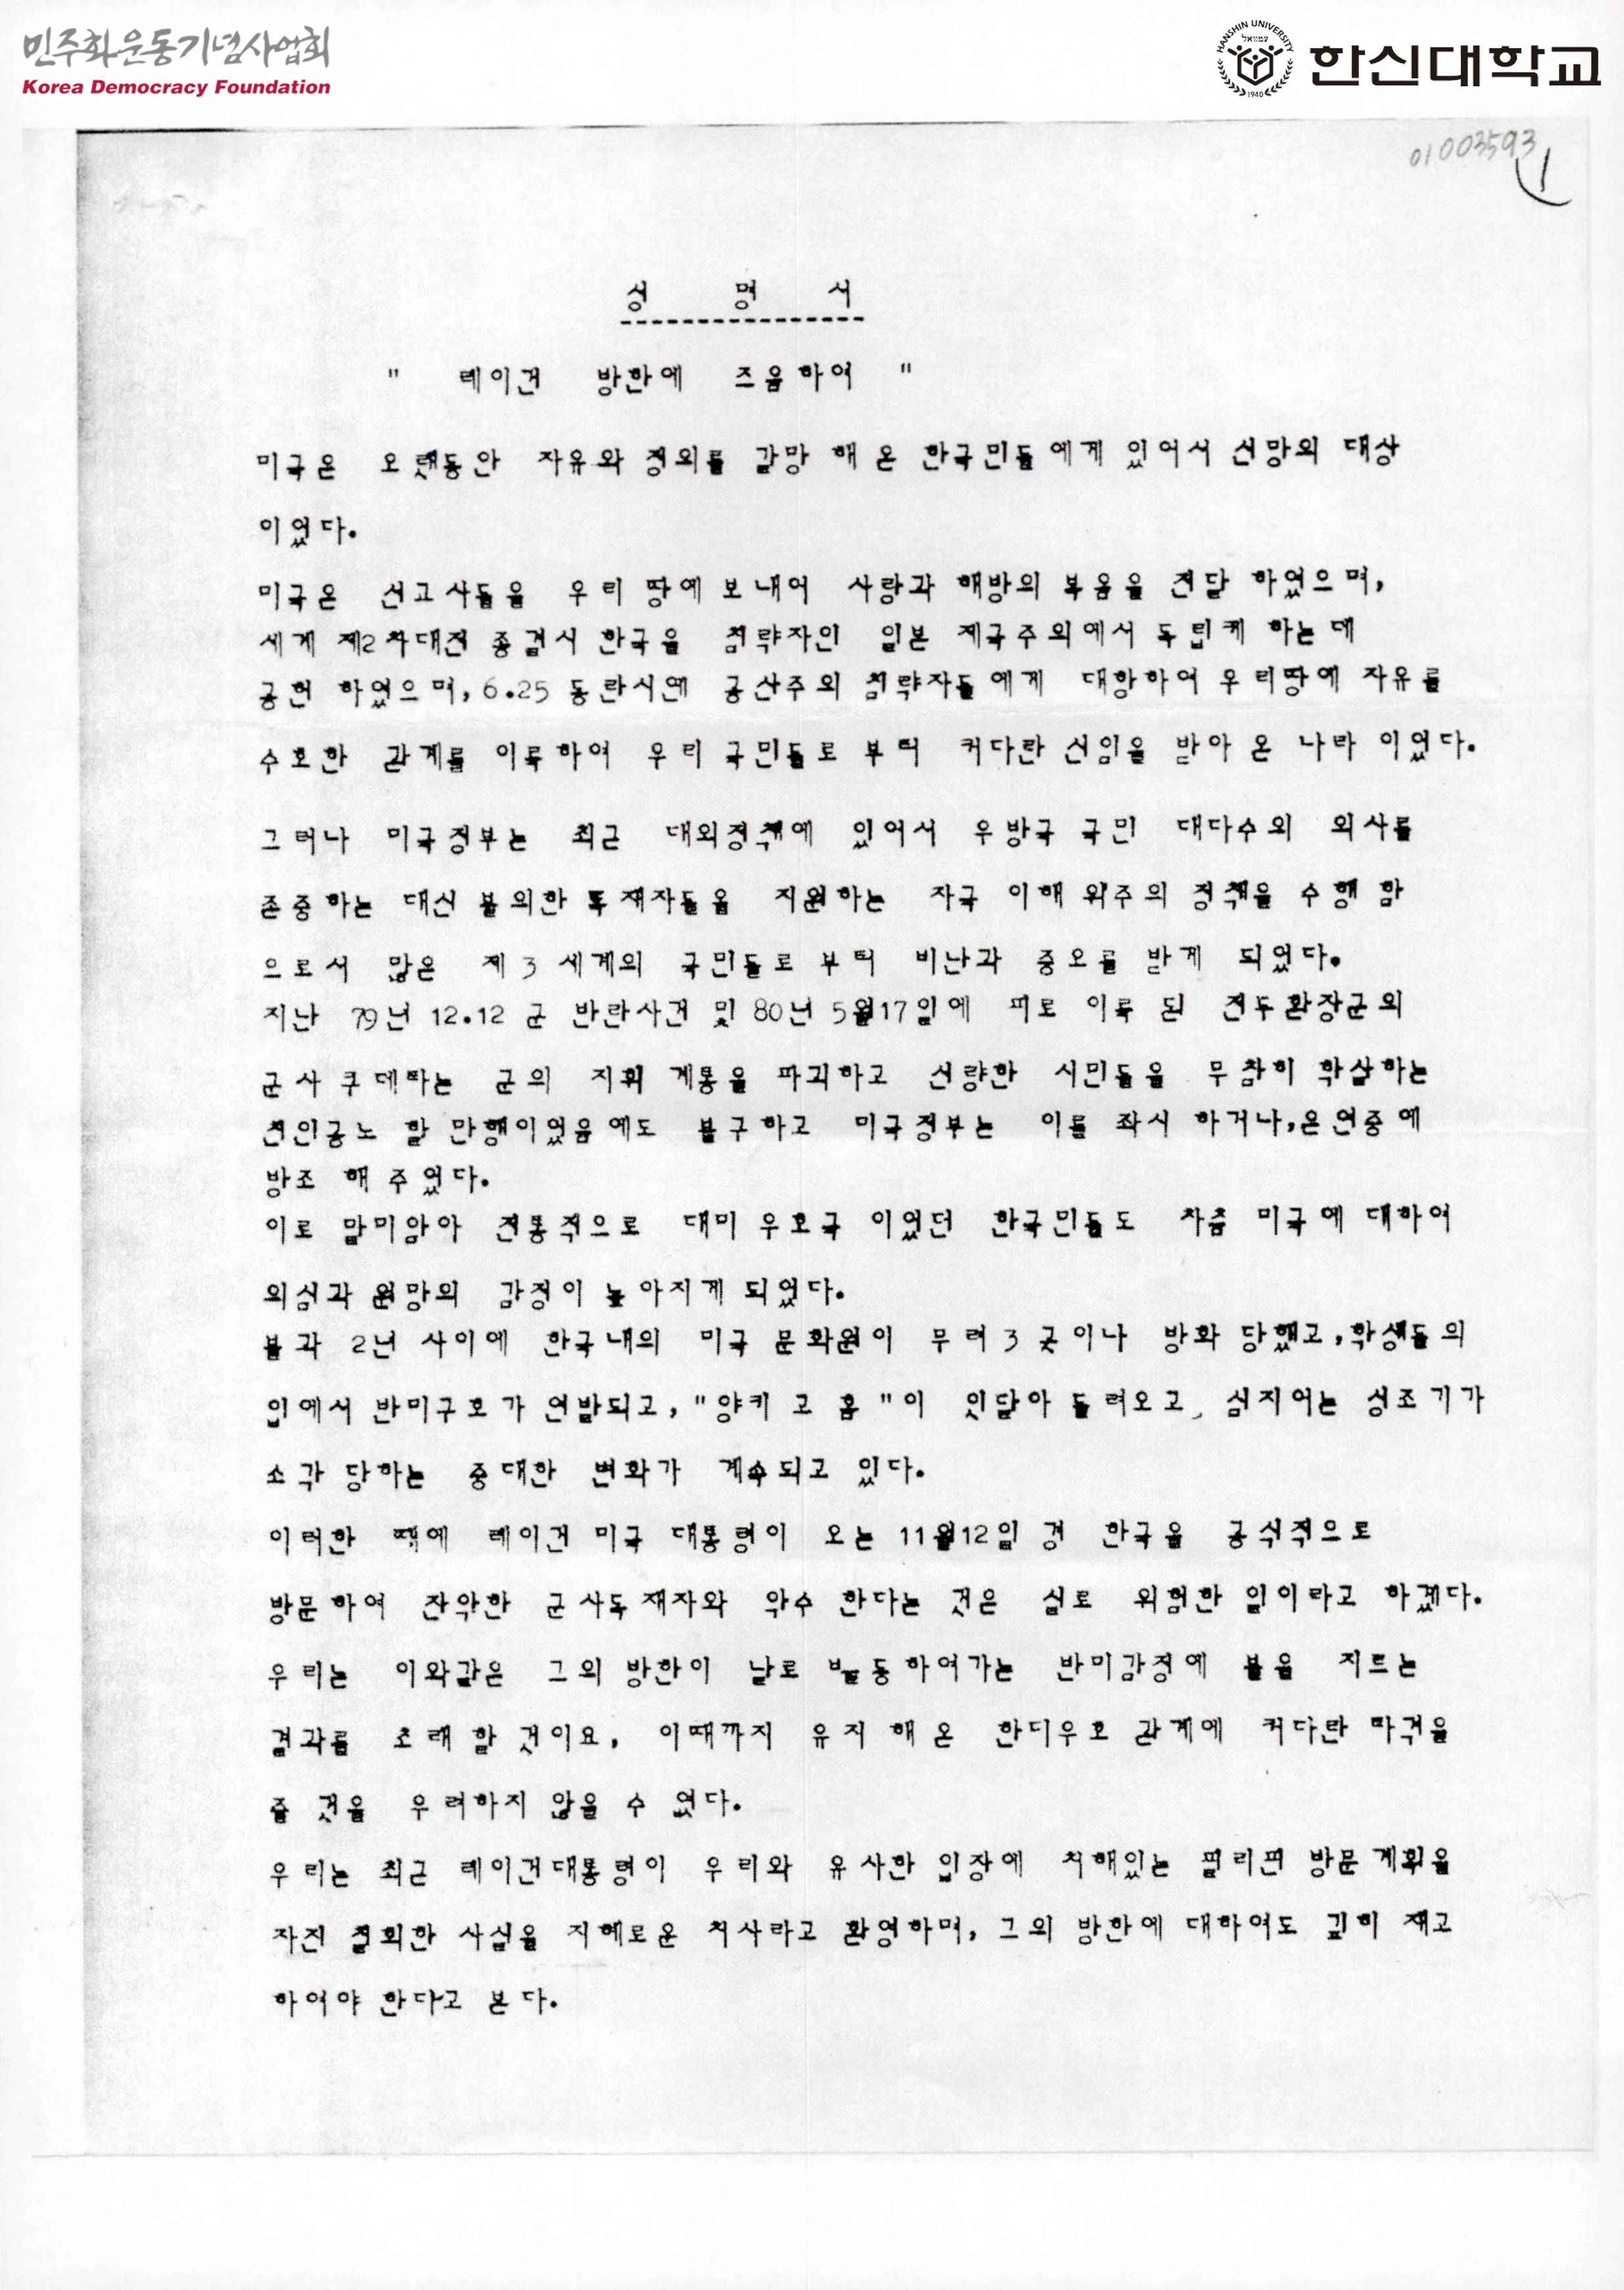 민주화운동기념사업회
Korea Democracy Foundation
HANSHIN UNIVERSITY
1940
한신대학교
01003593
1
성 명 서
" 레이건 방한에 즈음하여 "
미국은 오랫동안 자유와 정의를 갈망 해 온 한국민들에게 있어서 선망의 대상
이었다.
미국은 선교사들을 우리 땅에 보내어 사랑과 해방의 복음을 전달 하였으며,
세계 제2차대전 종결시 한국을 침략자인 일본 제국주의에서 독립케 하는데
공헌 하였으며, 6.25 동란시엔 공산주의 침략자들에게 대항하여 우리땅에 자유를
수호한 관계를 이룩하여 우리 국민들로 부터 커다란 신임을 받아 온 나라 이었다.
그러나 미국정부는 최근 대외정책에 있어서 우방국 국민 대다수의 의사를
존중하는 대신 불의한 독재자들을 지원하는 자국 이해 위주의 정책을 수행 함
으로서 많은 제 3 세계의 국민들로 부터 비난과 증오를 받게 되었다.
지난 79년 12.12 군 반란사건 및 80년 5월17일에 피로 이룩 된 전두환장군의
군사 쿠데타는 군의 지휘 계통을 파괴하고 선량한 시민들을 무참히 학살하는
천인공노 할 만행이었음에도 불구하고 미국정부는 이를 좌시 하거나,은연중에
방조 해 주었다.
이로 말미암아 전통적으로 대미 우호국 이었던 한국민들도 차츰 미국에 대하여
의심과 원망의 감정이 높아지게 되었다.
불과 2년 사이에 한국내의 미국 문화원이 무려 3 곳이나 방화 당했고,학생들의
입에서 반미구호가 연발되고, "양키 고 홈 "이 잇달아 들려오고, 심지어는 성조기가
소각 당하는 중대한 변화가 계속되고 있다.
이러한 때에 레이건 미국 대통령이 오는 11월12일 경 한국을 공식적으로
방문하여 잔악한 군사독재자와 악수 한다는 것은 실로 위험한 일이라고 하겠다.
우리는 이와같은 그의 방한이 날로 발동하여가는 반미감정에 불을 지르는
결과를 초래 할 것이요, 이때까지 유지 해 온 한미우호 관계에 커다란 타격을
줄 것을 우려하지 않을 수 없다.
우리는 최근 레이건대통령이 우리와 유사한 입장에 처해있는 필리핀 방문계획을
자진 철회한 사실을 지혜로운 처사라고 환영하며, 그의 방한에 대하여도 깊히 재고
하여야 한다고 본다.